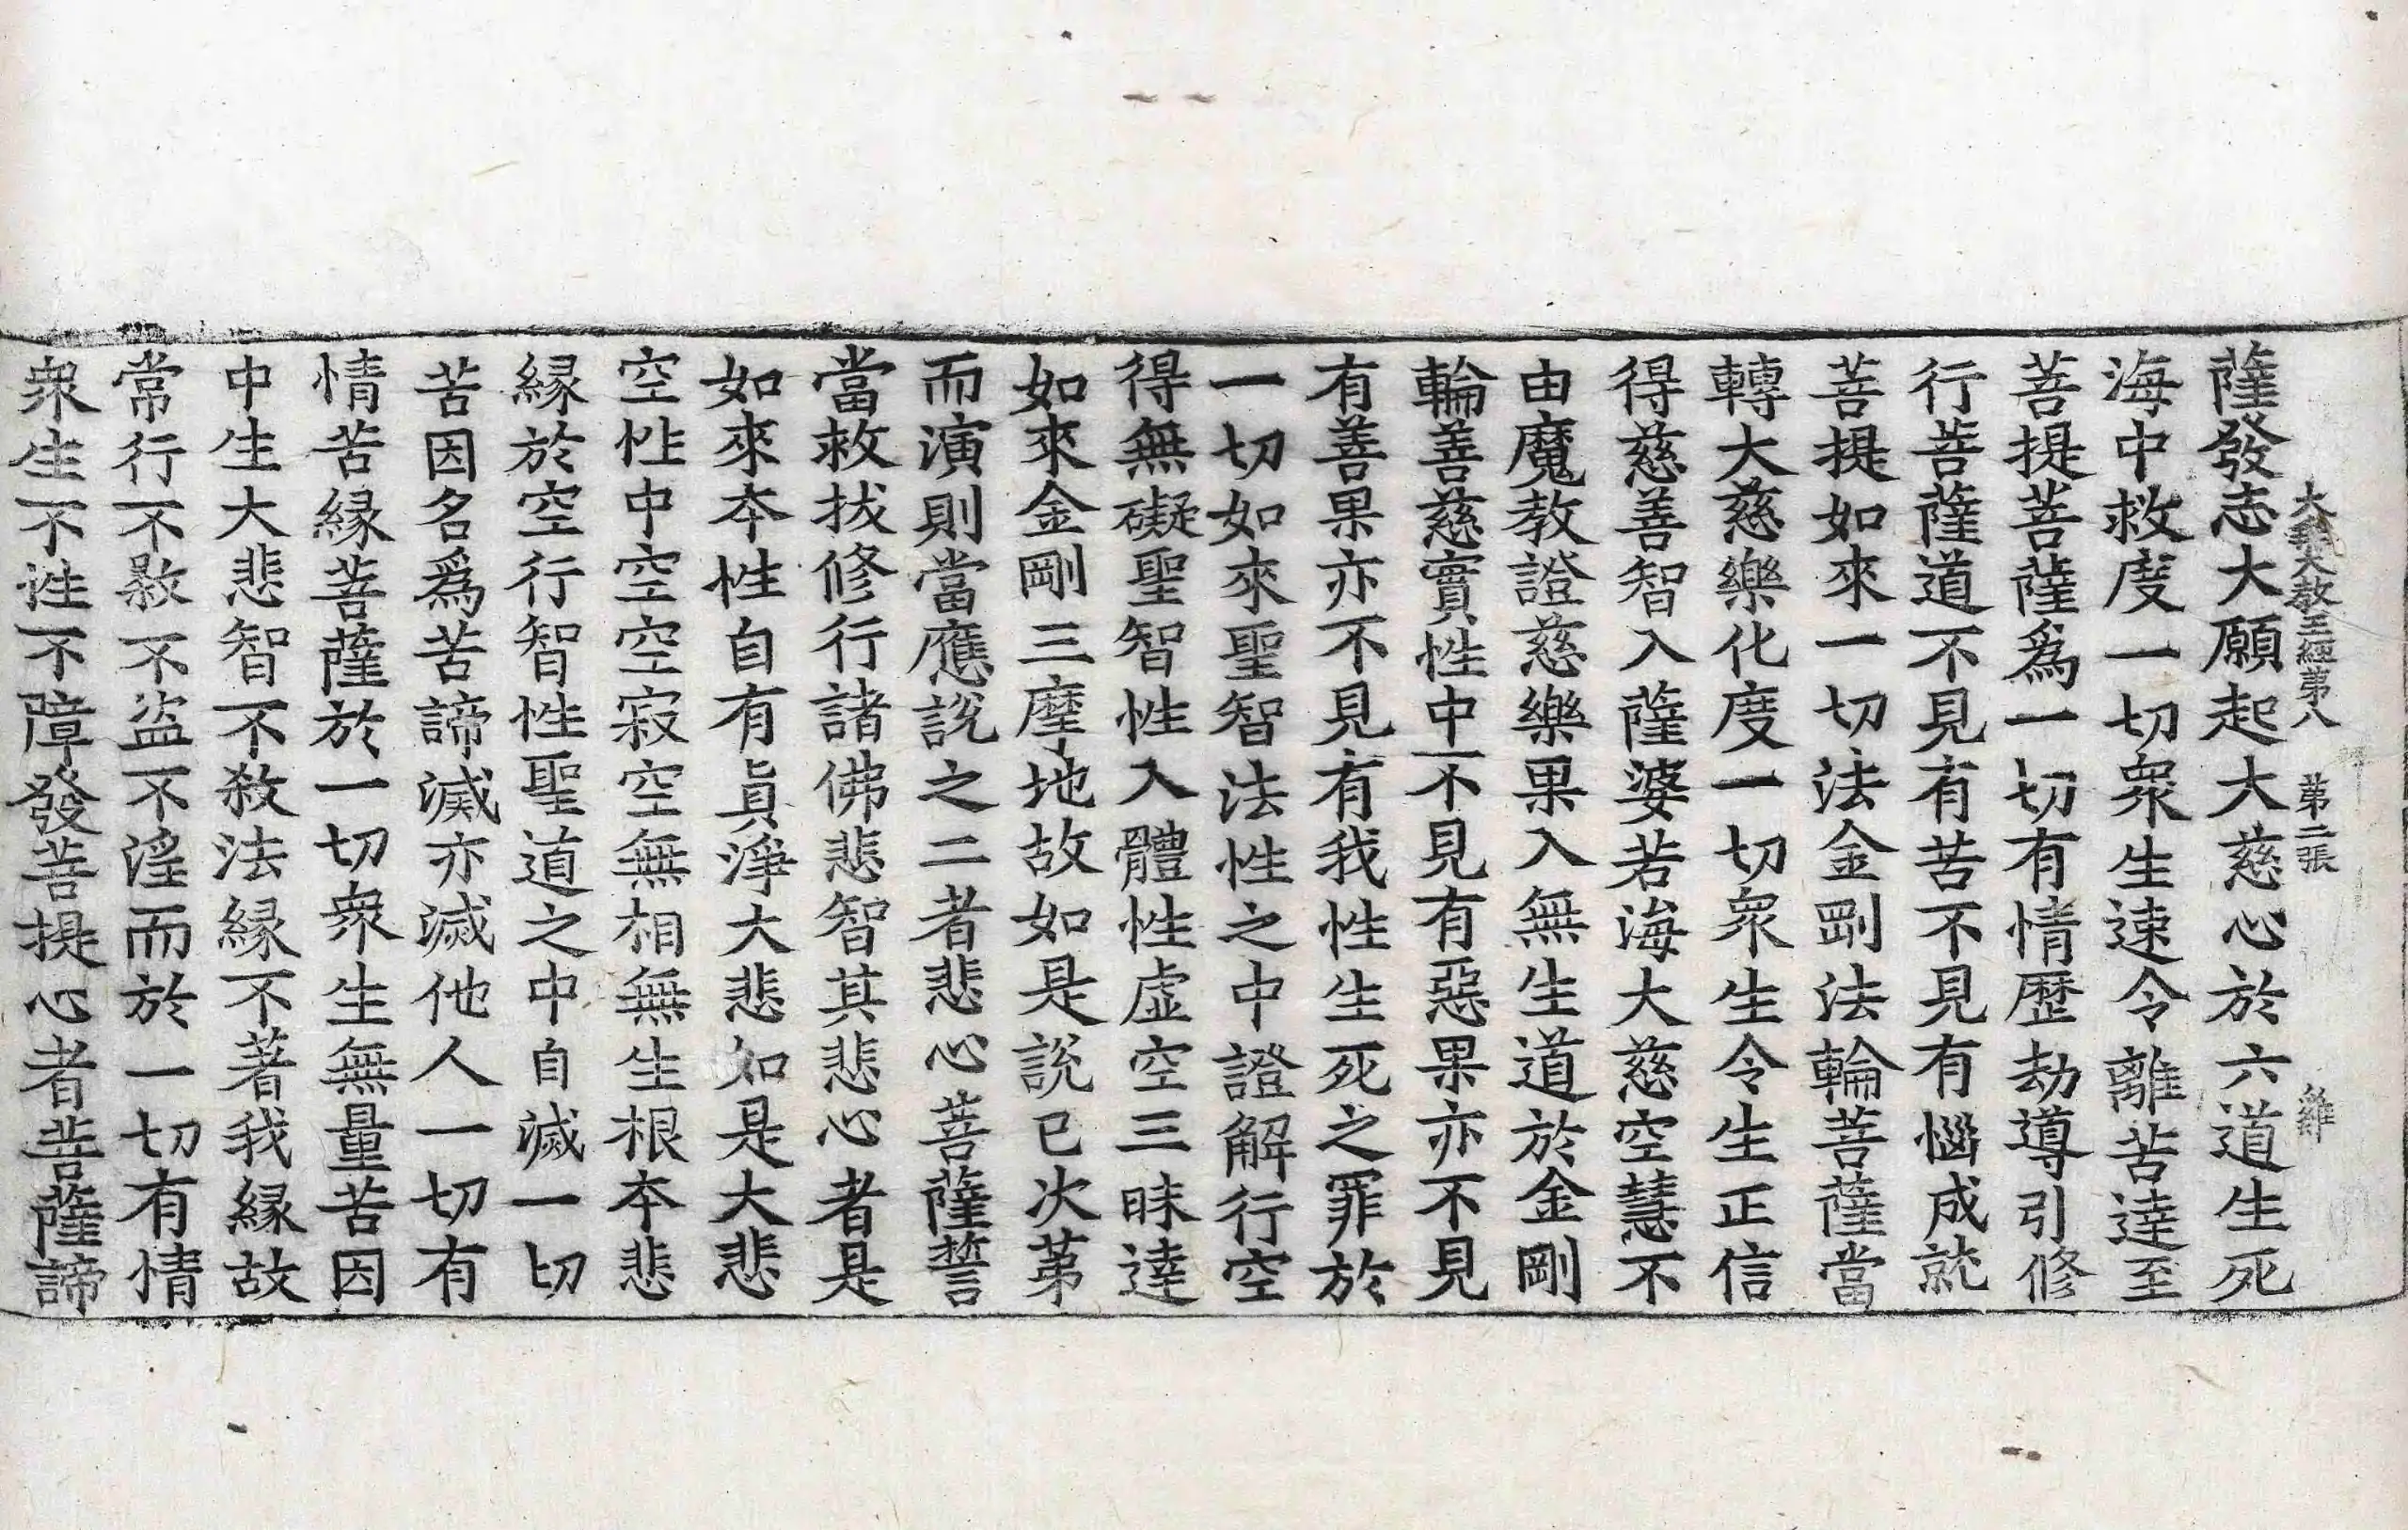 大乘大教王經第八　第二張　離
薩發志大願起大慈心於六道生死
海中救度一切衆生速令離苦達至
菩提菩薩爲一切有情歷劫導引修
行菩薩道不見有苦不見有惱成就
菩提如來一切法金剛法輪菩薩當
轉大慈樂化度一切衆生令生正信
得慈善智入薩婆若海大慈空慧不
由魔教證慈樂果入無生道於金剛
輪善慈實性中不見有惡果亦不見
有善果亦不見有我性生死之罪於
一切如來聖智法性之中證解行空
得無礙聖智性入體性虛空三昧達
如來金剛三摩地故如是說已次第
而演則當應說之二者悲心菩薩誓
當救拔修行諸佛悲智其悲心者是
如來本性自有眞淨大悲如是大悲
空性中空空寂空無相無生根本悲
緣於空行智性聖道之中自滅一切
苦因名爲苦諦滅亦滅他人一切有
情苦緣菩薩於一切衆生無量苦因
中生大悲智不殺法緣不著我緣故
常行不殺不盜不淫而於一切有情
衆生不性不障發菩提心者菩薩諦